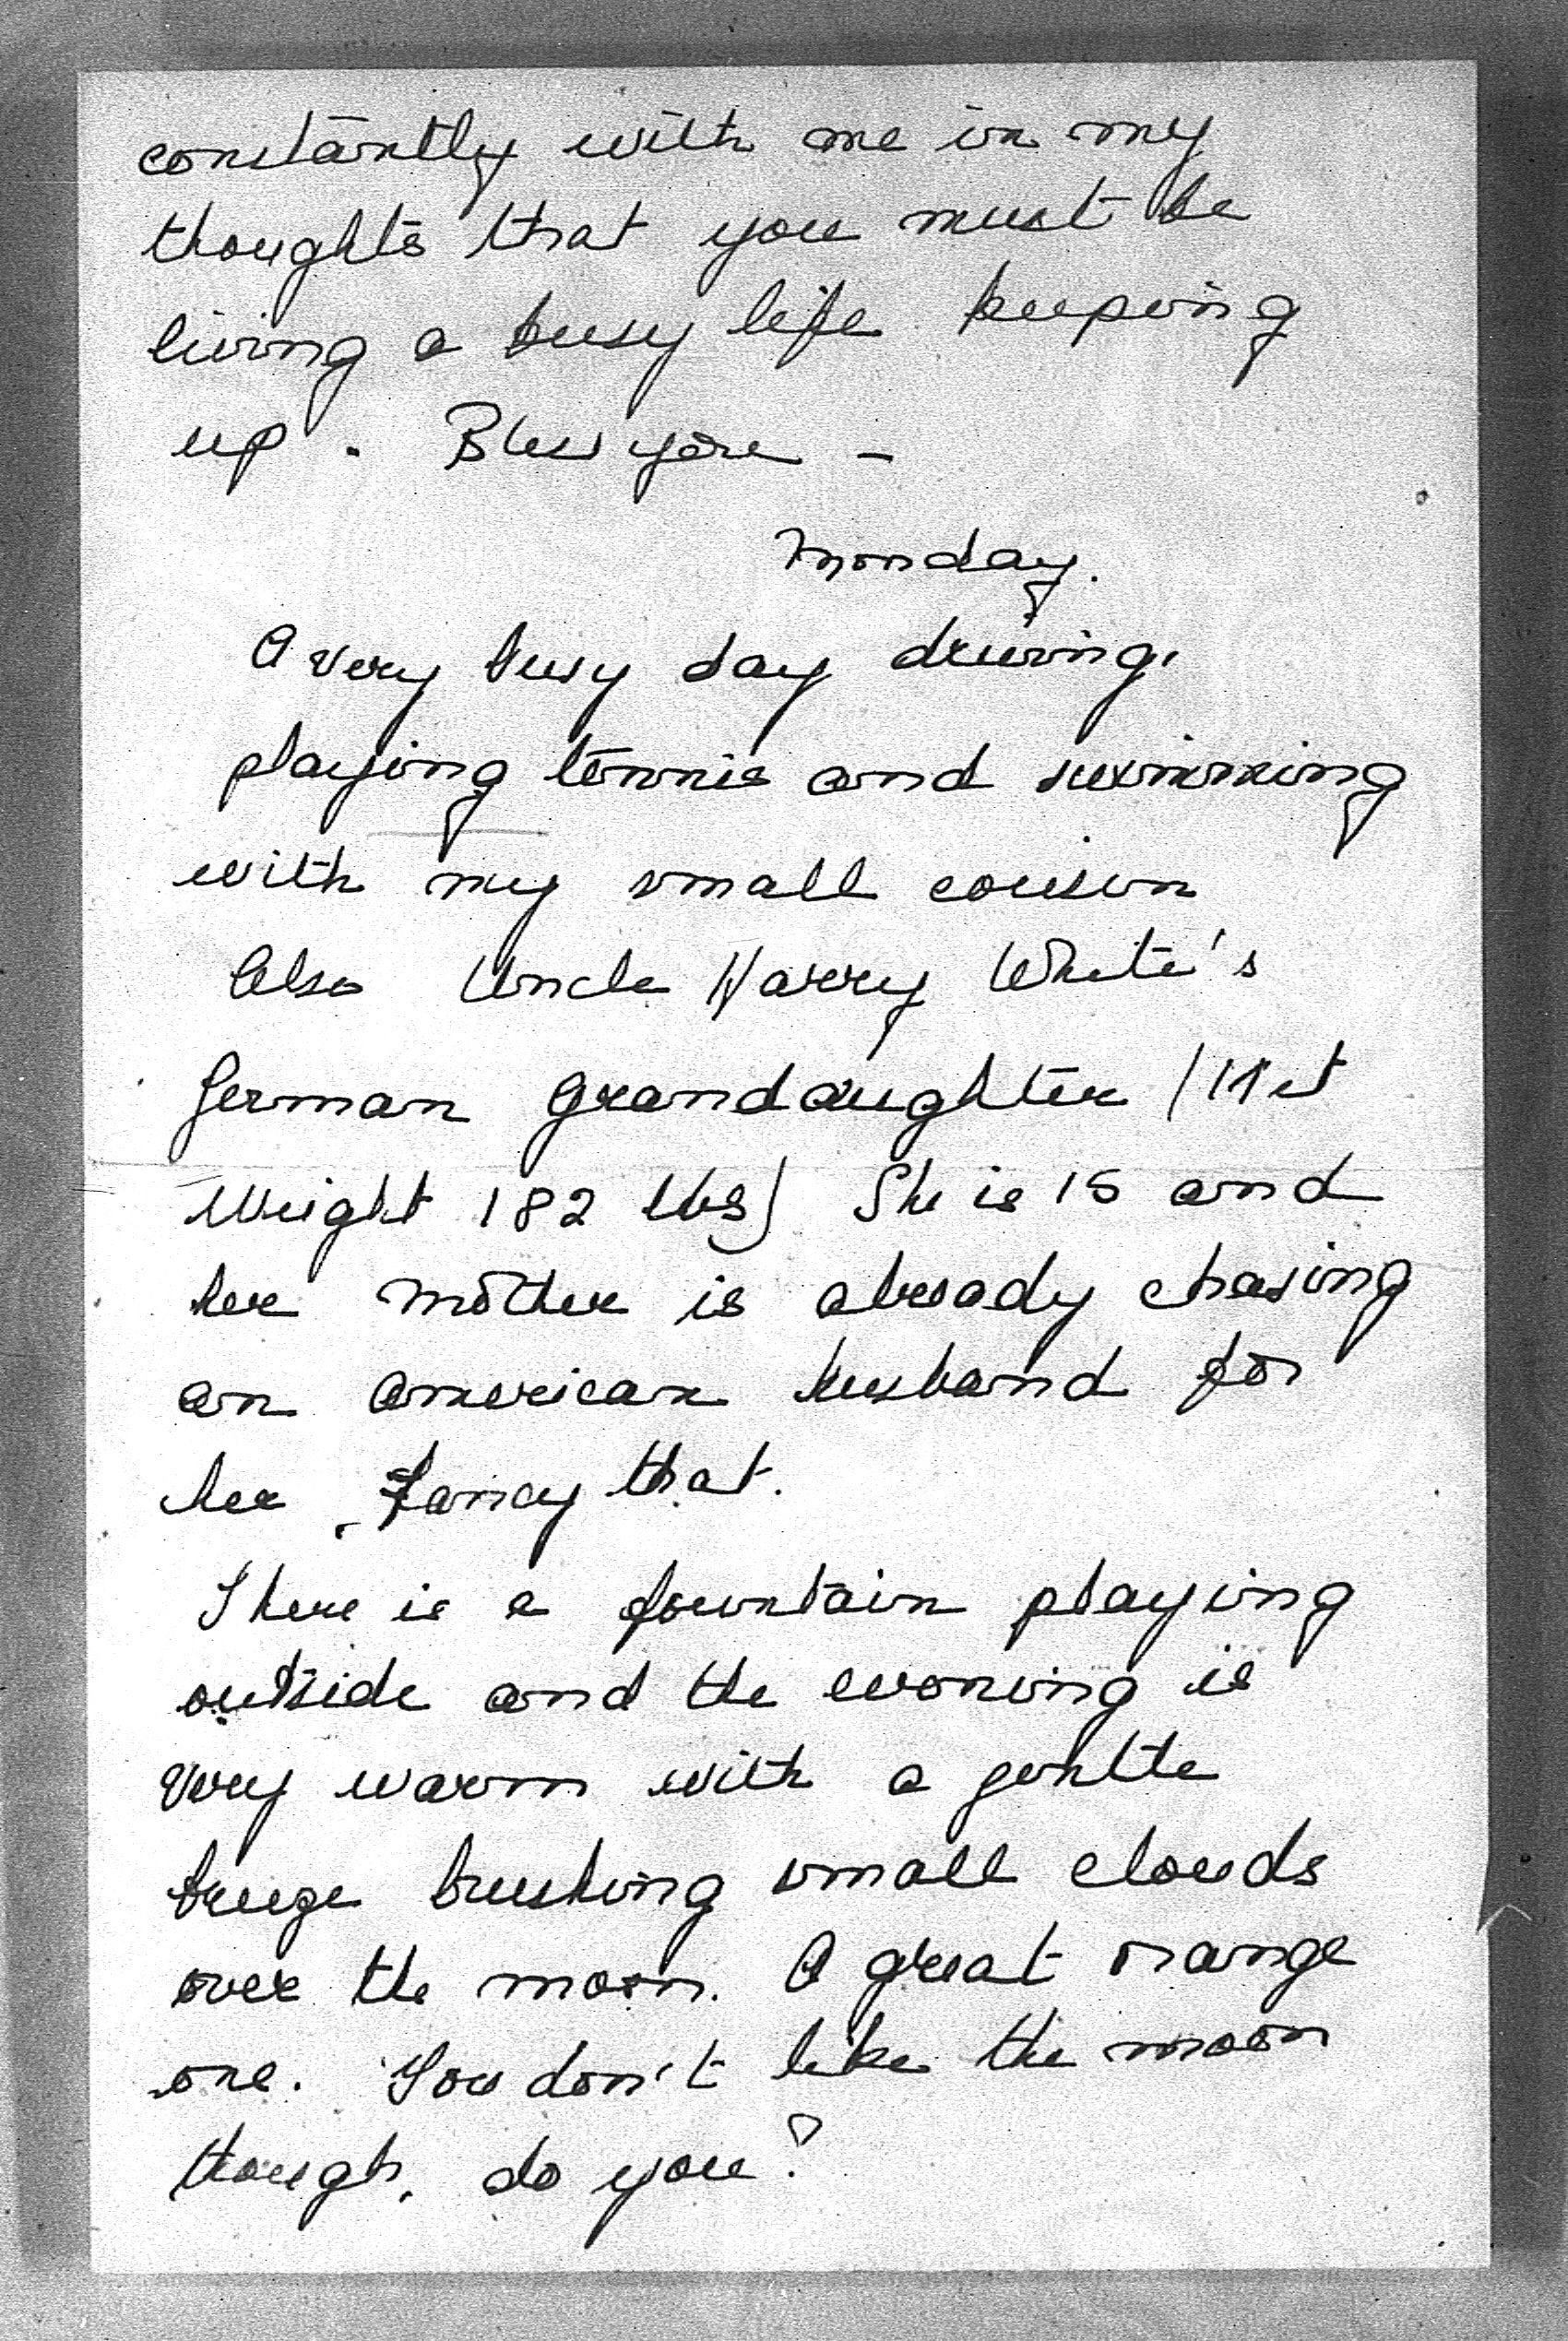 constantly with me in my
thoughts that you must be
living a busy life keeping
up. Bless you –
Monday.
A very busy day driving,
playing tennis and swimming
with my small cousin
Also Uncle Harry White's
German Grandaughter
Weight 182 lbs) She is 15 and
her mother is already chasing
an American husband for
her. Fancy that.
There is a fountain playing
outside and the evening is
very warm with a gentle
breeze brushing small clouds
over the moon. A great orange
one. You don't like the moon
though, do you?